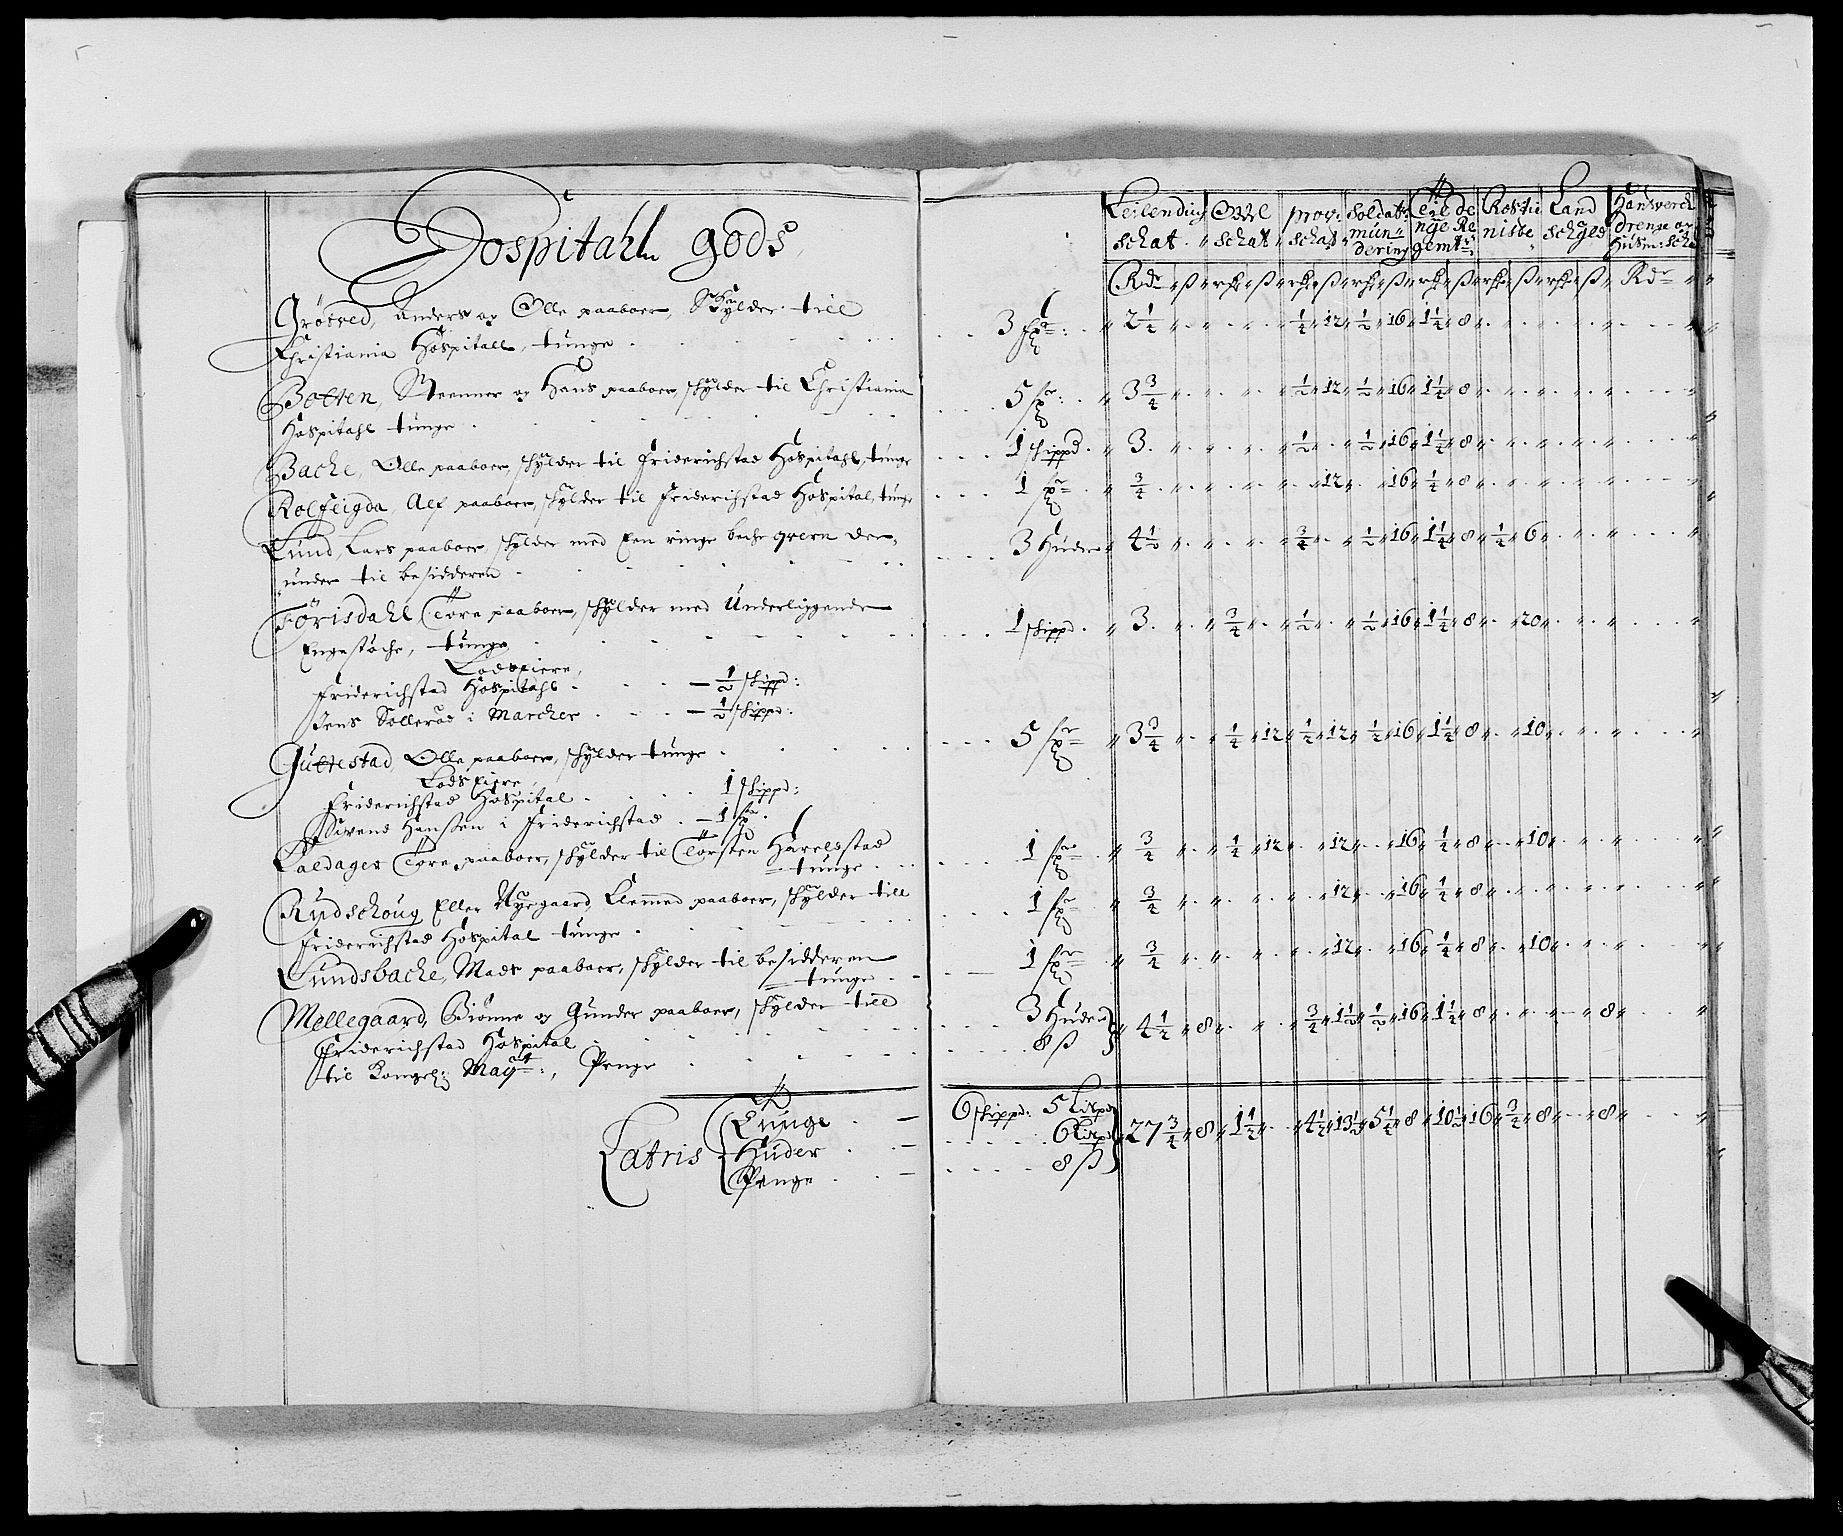 Hospitahls gods
Grötved, Anders og Olle paaboer, Skylder till
Christiania Hospitall, tunge
Botten, og Hans paaboer, skylder til Christiania
Hospitahl tunge
Bache, Olle paaboer, skylder til Friderichstad Hospitahl, tunge
Rolfeigda, Alf paaboer, skylder til Friderichstad Hospital, tunge
Lund, Lars paaboer, skylder med Een ringe beche qvern der,
under til besidderen
Förisdahl, Tore paaboer, skylder med Underliggende
Engestöche, tunge
Lodseiere,
Friderichstad Hospitahl - 1/2 skippd:
Jens Sollerød i Marcher - 1/2 skippd:
Guttestad, Olle paaboer, skylder tunge
Lodseiere,
Friderichstad Hospital 1 skippd:
Svend Hanssen i Friderichstad - 1
Kaldager Tore paaboer, skylder til Torsten Harelsstad
tunge
Rudschoug Eller Nyegaard, Clemmed paaboer, skylder till
Friderichstad Hospital tunge
Lundsbache, Mads paaboer, skylder til besidderen
tunge
Mellegaard, Biönne og Gunder paaboer, skylder till
Friderichstad Hospital
til Kongel: Mayt:, Penge
Latris
Tunge
Huder
Penge
Leilendings schat
Odel schat
prov: schat
Soldat: mundering
Teilde nge Regemt:
Rostieniste
Land schyld
Handverch drenge og Husm: schat
Rdr ß rhr ß rhr ß rhr ß rhr ß rhr ß rhr ß Rdr
3 2 1/2 1/2 12 1/2 16 1 1/4 8
5 3 3/4 1/2 12 1/2 16 1 1/4 8
1 skippd 3 1/2 1/2 16 1 1/4 8
1 3/4 12 16 1/2 8
3 Huder 4 1/2 3/4 1/2 16 1 1/4 8 1/2 6
1 skippd 3 3/4 1/2 1/2 16 1 1/4 8 20
5 3 3/4 1/2 12 1/2 12 1/2 16 1 1/4 8 10
1 3/4 1/2 12 12 16 1/2 8 10
1 3/4 12 16 1/2 8
1 3/4 12 16 1/2 8 10
3 Huder 4 1/2 8 3/4 1 1/2 1/2 16 1 1/4 8 8
8 ß
6 skippd: 5 Lispd 27 3/4 8 1 1/2 4 1/2 13 1/2 5 1/4 8 10 1/2 16 3/4 8 8
6
8 ß